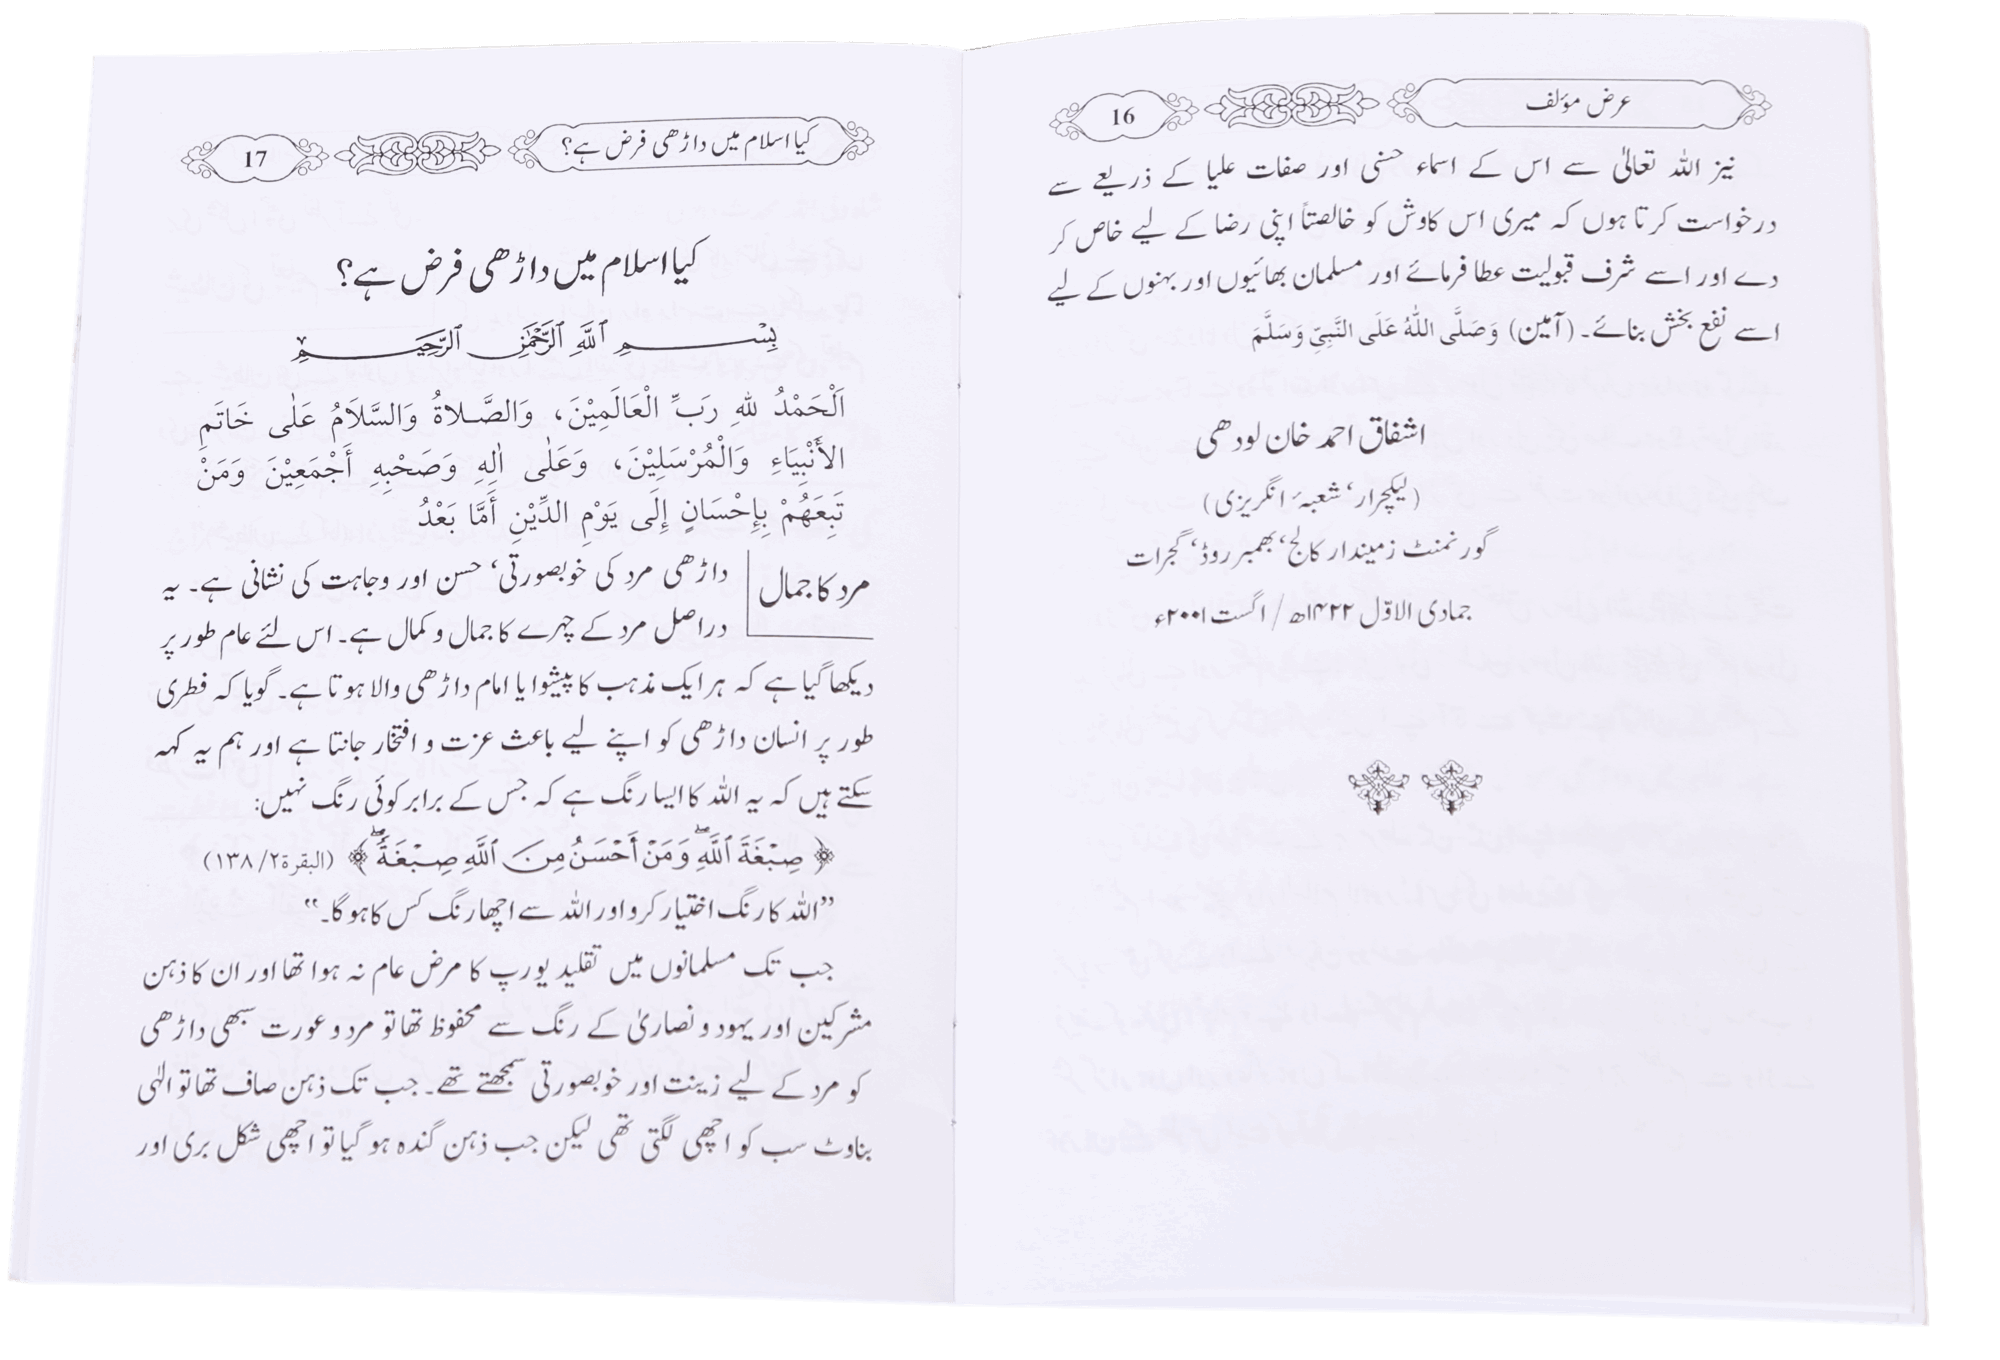 عرض مؤلف
16
نیز اللہ تعالیٰ سے اس کے اسماء حسنی اور صفات علیا کے ذریعے سے
درخواست کرتا ہوں کہ میری اس کاوش کو خالصتاً اپنی رضا کے لیے خاص کر
دے اور اسے شرف قبولیت عطا فرمائے اور مسلمان بھائیوں اور بہنوں کے لیے
اسے نفع بخش بنائے۔ (آمین) وَصَلَّى اللهُ عَلَى النَّبِيِّ وَسَلَّمَ
اشفاق احمد خان لودھی
(لیکچرار، شعبہٴ انگریزی)
گورنمنٹ زمیندار کالج، بھمبر روڈ، گجرات
جمادی الاوّل ۱۴۲۲ھ / اگست ۲۰۰۱ء
کیا اسلام میں داڑھی فرض ہے؟
17
کیا اسلام میں داڑھی فرض ہے؟
بِسْمِ ٱللَّهِ ٱلرَّحْمَٰنِ ٱلرَّحِيمِ
اَلْحَمْدُ لِلهِ رَبِّ الْعَالَمِيْنَ، وَالصَّلاةُ وَالسَّلَامُ عَلٰى خَاتَمِ
الأَنْبِيَاءِ وَالْمُرْسَلِيْنَ، وَعَلٰى اٰلِهِ وَصَحْبِهِ أَجْمَعِيْنَ وَمَنْ
تَبِعَهُمْ بِإِحْسَانٍ إِلَى يَوْمِ الدِّيْنِ أَمَّا بَعْدُ
مرد کا جمال
داڑھی مرد کی خوبصورتی، حسن اور وجاہت کی نشانی ہے۔ یہ
دراصل مرد کے چہرے کا جمال و کمال ہے۔ اس لئے عام طور پر
دیکھا گیا ہے کہ ہر ایک مذہب کا پیشوا یا امام داڑھی والا ہوتا ہے۔ گویا کہ فطری
طور پر انسان داڑھی کو اپنے لیے باعث عزت و افتخار جانتا ہے اور ہم یہ کہہ
سکتے ہیں کہ یہ اللہ کا ایسا رنگ ہے کہ جس کے برابر کوئی رنگ نہیں:
﴿ صِبْغَةَ ٱللَّهِ ۖ وَمَنْ أَحْسَنُ مِنَ ٱللَّهِ صِبْغَةً ۖ ﴾ (البقرة۲/ ۱۳۸)
”اللہ کا رنگ اختیار کرو اور اللہ سے اچھا رنگ کس کا ہو گا۔“
جب تک مسلمانوں میں تقلید یورپ کا مرض عام نہ ہوا تھا اور ان کا ذہن
مشرکین اور یہود و نصاریٰ کے رنگ سے محفوظ تھا تو مرد و عورت سبھی داڑھی
کو مرد کے لیے زینت اور خوبصورتی سمجھتے تھے۔ جب تک ذہن صاف تھا تو الٰہی
بناوٹ سب کو اچھی لگتی تھی لیکن جب ذہن گندہ ہو گیا تو اچھی شکل بری اور